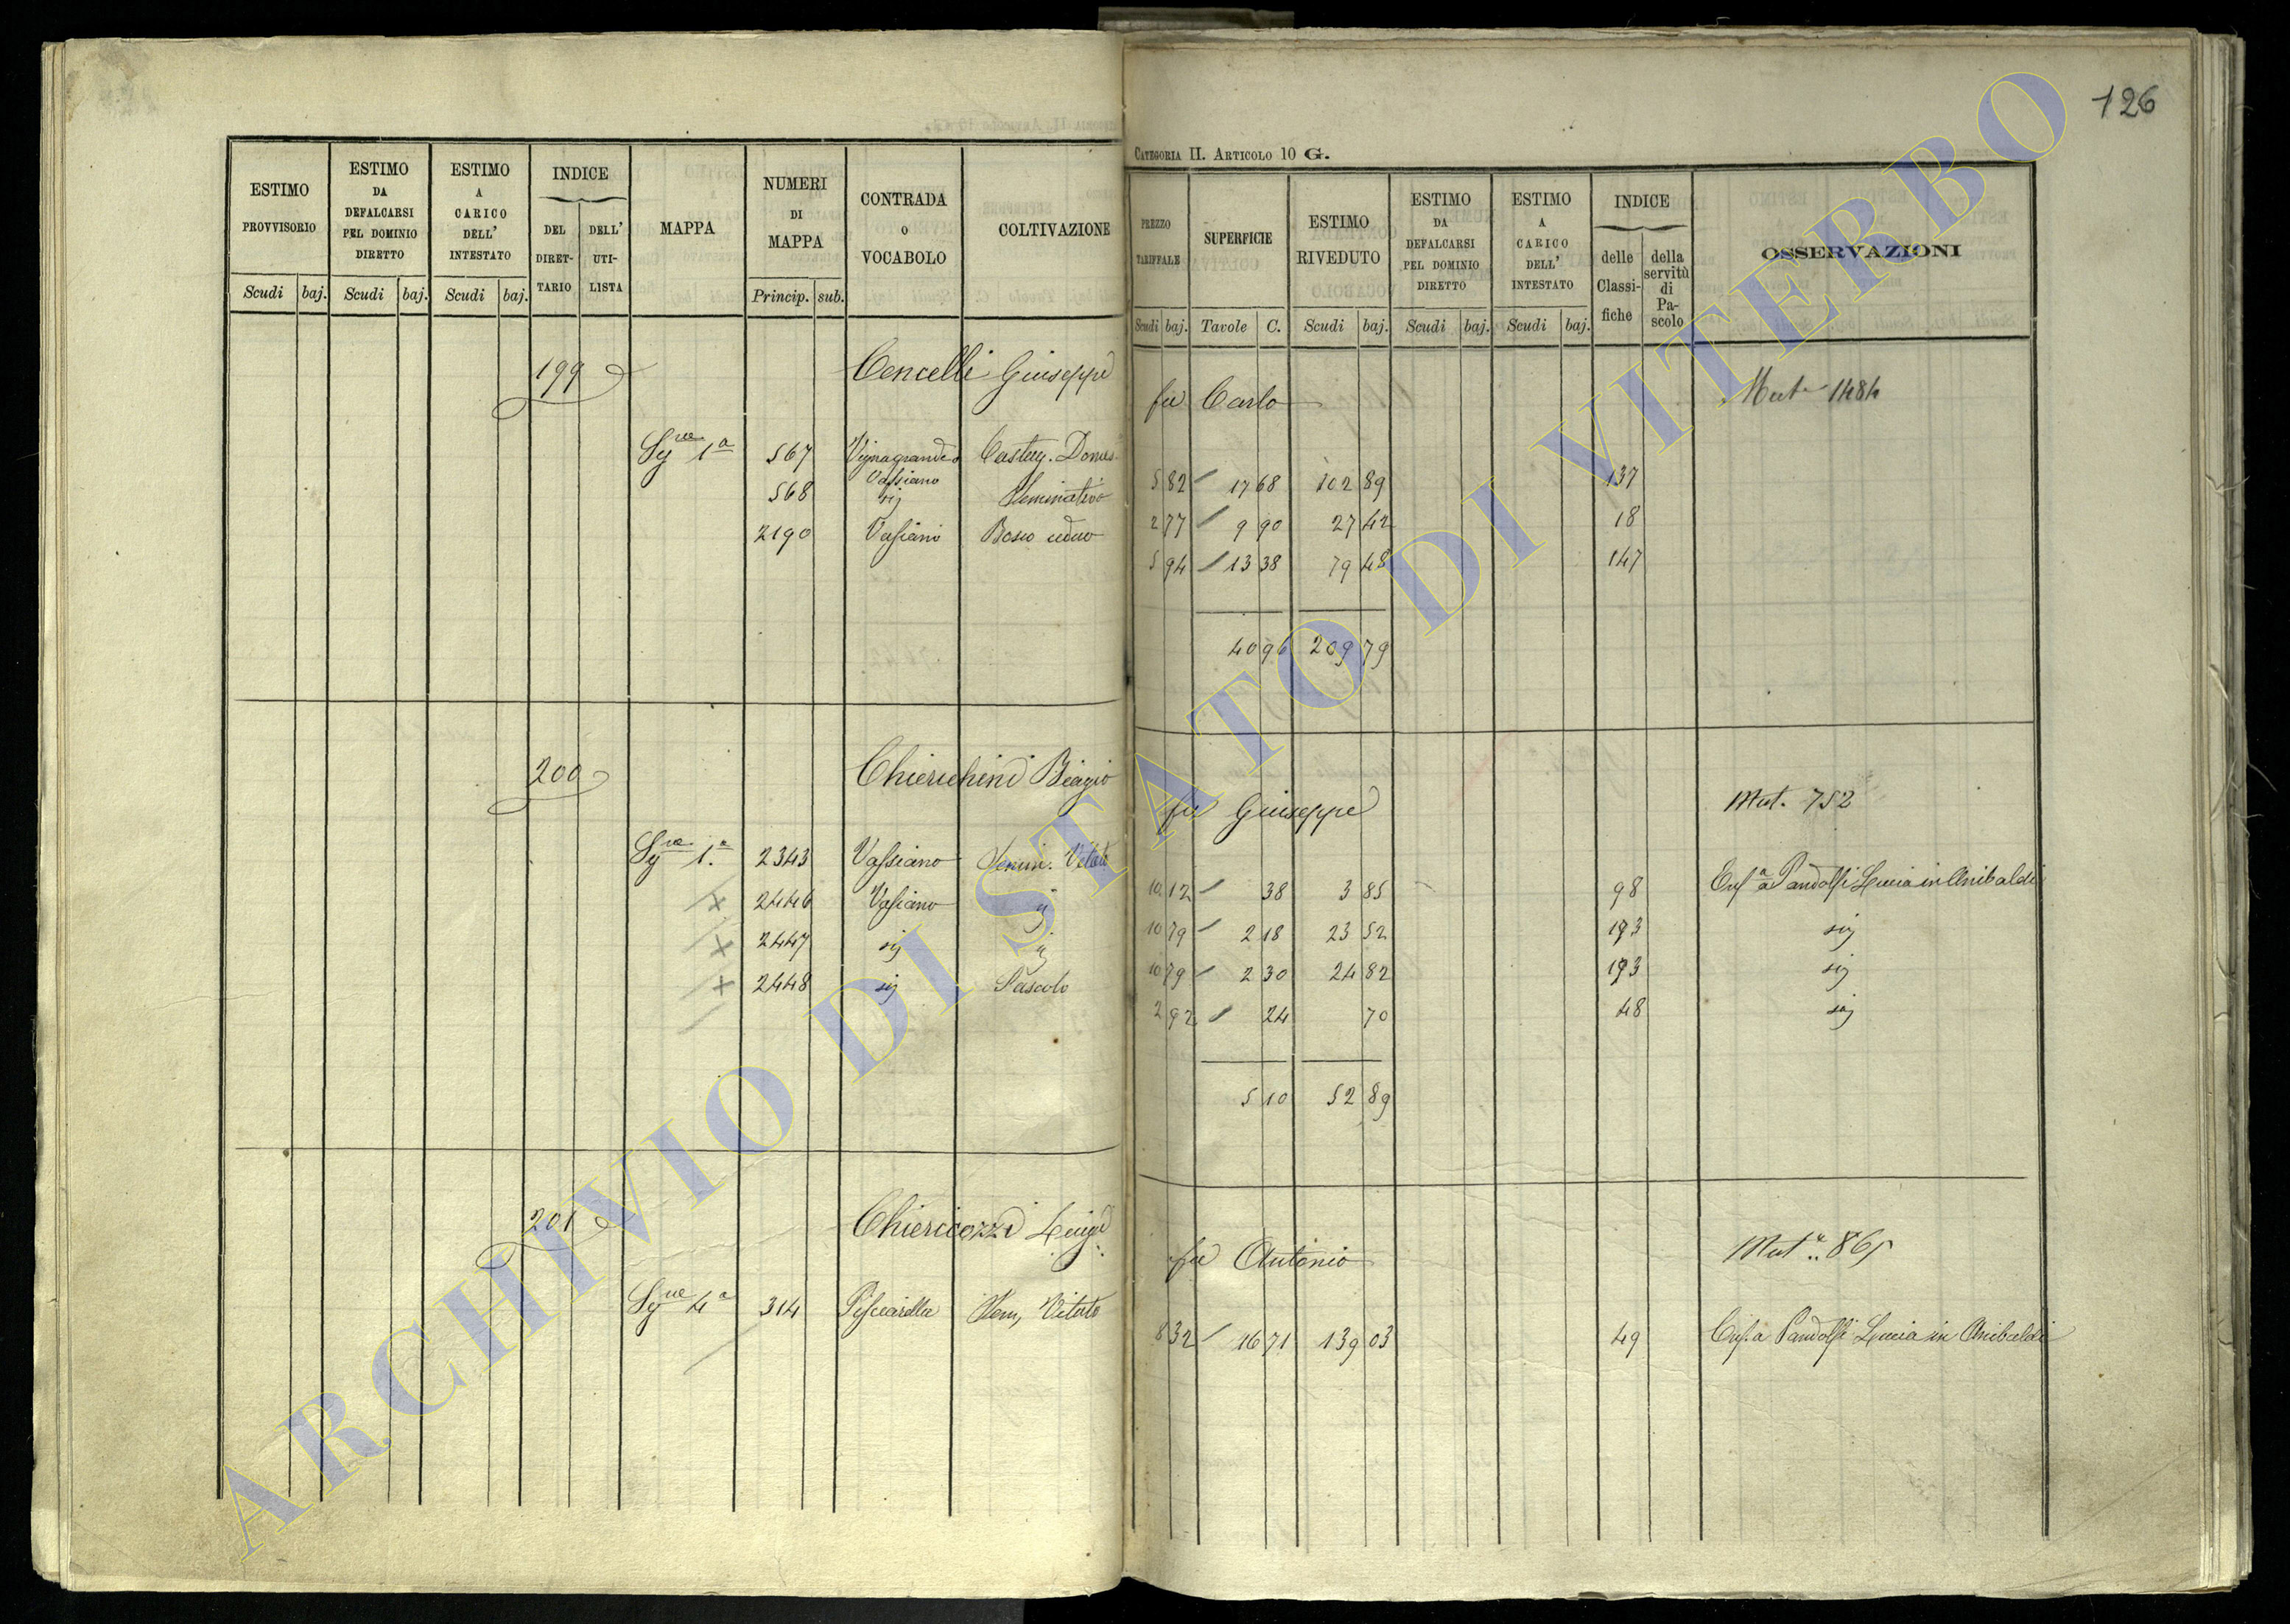 126
CATEGORIA II. ARTICOLO 10 G.
ESTIMO PROVVISORIO
ESTIMO DA DEFALCARSI PEL DOMINIO DIRETTO
ESTIMO A CARICO DELL' INTESTATO
INDICE
DEL DIRET-TARIO
DELL' UTI-LISTA
MAPPA
NUMERI DI MAPPA
CONTRADA O VOCABOLO
COLTIVAZIONE
Scudi baj. Scudi baj. Scudi baj. Princip. sub.
PREZZO TARIFFALE
SUPERFICIE
ESTIMO RIVEDUTO
ESTIMO DA DEFALCARSI PEL DOMINIO DIRETTO
ESTIMO A CARICO DELL' INTESTATO
INDICE
delle Classi-fiche
della servitù di Pa-scolo
OSSERVAZIONI
Scudi baj. Tavole C. Scudi baj. Scudi baj. Scudi baj.
199 Cencelli Giuseppe fu Carlo Mut 1484
1a 567 Vignagrande o Vassiano Castag. Domes. 5 82 17 68 102 89 137
568 sij Seminativo 2 77 9 90 27 42 18
2190 Vasiano Bosco ceduo 5 94 13 38 79 48 147
40 96 209 79
200 Chierichini Biagio fu Giuseppe Mut. 752
1.a 2343 Vassiano Semin. Vitato 10 12 38 3 85 98 Enfa a Pandolfi Lucia in Anibaldi
2446 Vasiano ij 10 79 2 18 23 52 193 sij
2447 sij ij 10 79 2 30 24 82 193 sij
2448 sij Pascolo 2 92 24 70 48 sij
5 10 52 89
201 Chiericozzi Luigi fu Antonio Mut. 865
4a 314 Pesciarella Sem, Vitato 8 32 16 71 139 03 49 Enf. a Pandolfi Lucia in Anibaldi
ARCHIVIO DI STATO DI VITERBO